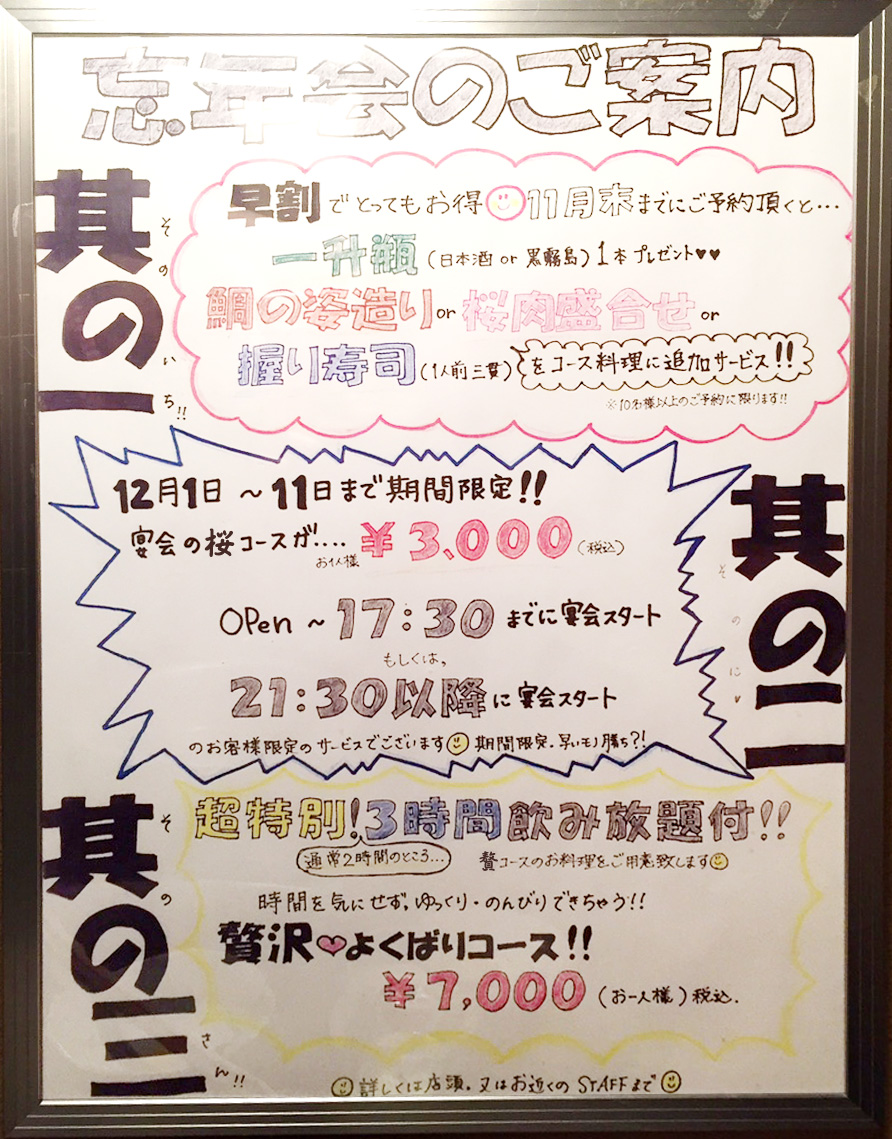 忘年会のご案内
其の一
そのいち!!
早割でとってもお得 11月末までにご予約頂くと…
一升瓶(日本酒 or 黒霧島)1本プレゼント♥♥
鯛の姿造り or 桜肉盛合せ or
握り寿司(1人前三貫)をコース料理に追加サービス!!
※10名様以上のご予約に限ります!!
其の二
そのに♥
12月1日 ~ 11日まで期間限定!!
宴会の桜コースが.... お1人様 ¥3,000(税込)
OPen ~ 17:30 までに宴会スタート
もしくは、
21:30以降に宴会スタート
のお客様限定のサービスでございます 期間限定.早いモノ勝ち?!
其の三
そのさん!!
超特別!3時間飲み放題付!!
通常2時間のところ…
贅コースのお料理をご用意致します
時間を気にせず、ゆっくり・のんびりできちゃう!!
贅沢♥よくばりコース!!
¥7,000(お一人様)税込.
詳しくは店頭.又はお近くの STAFFまで